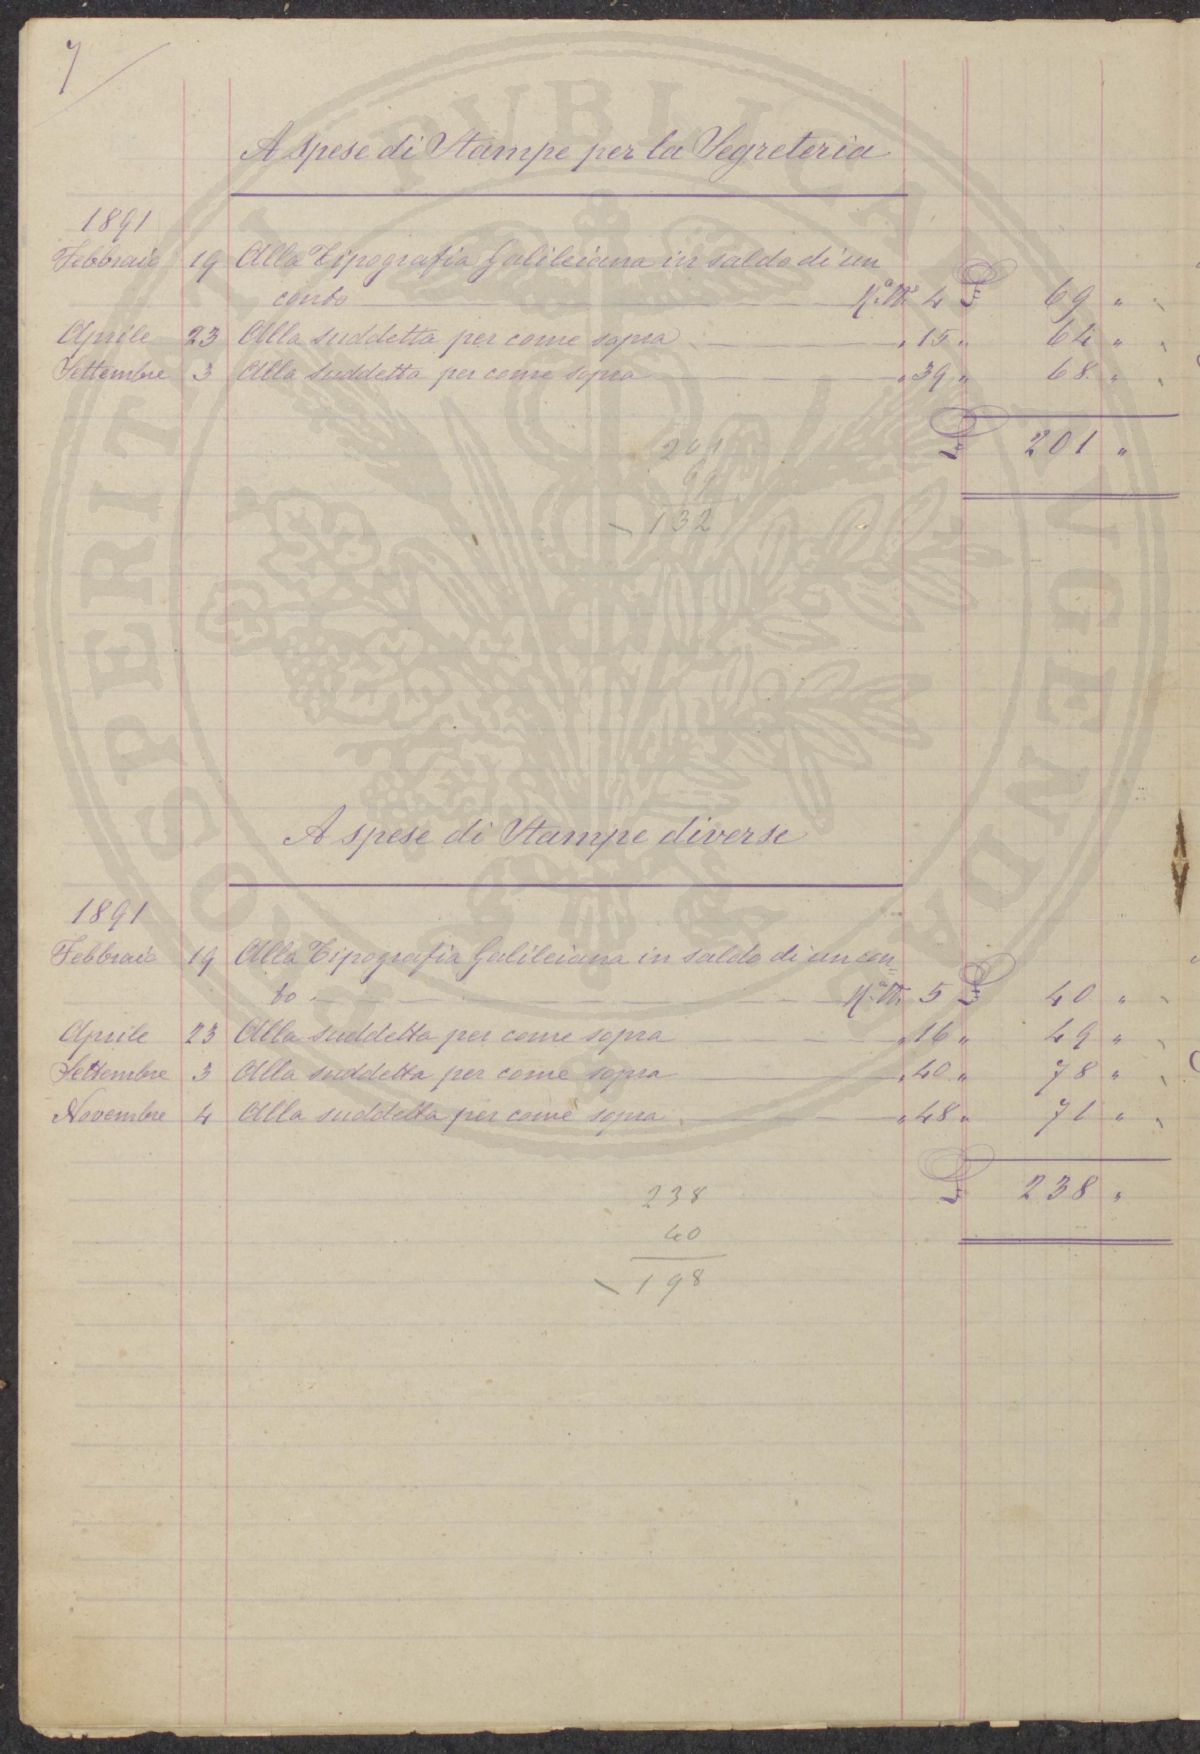 7
A spese di Stampe per la Segreteria
1891
Febbraio 19 Alla Tipografia Galileiana in saldo di un
conto N.° M. 4 £ 69 "
Aprile 23 Alla suddetta per come sopra " 15 " 64 "
Settembre 3 Alla suddetta per come sopra " 39 " 68 "
£ 201 "
201
69
132
A spese di Stampe diverse
1891
Febbraio 19 Alla Tipografia Galileiana in saldo di un con=
to N.° M. 5 £ 40 "
Aprile 23 Alla suddetta per come sopra " 16 " 49 "
Settembre 3 Alla suddetta per come sopra " 40 " 78 "
Novembre 4 Alla suddetta per come sopra " 48 " 71 "
£ 238 "
238
40
198
PROSPERITATI PVBLICAE AVGENDAE